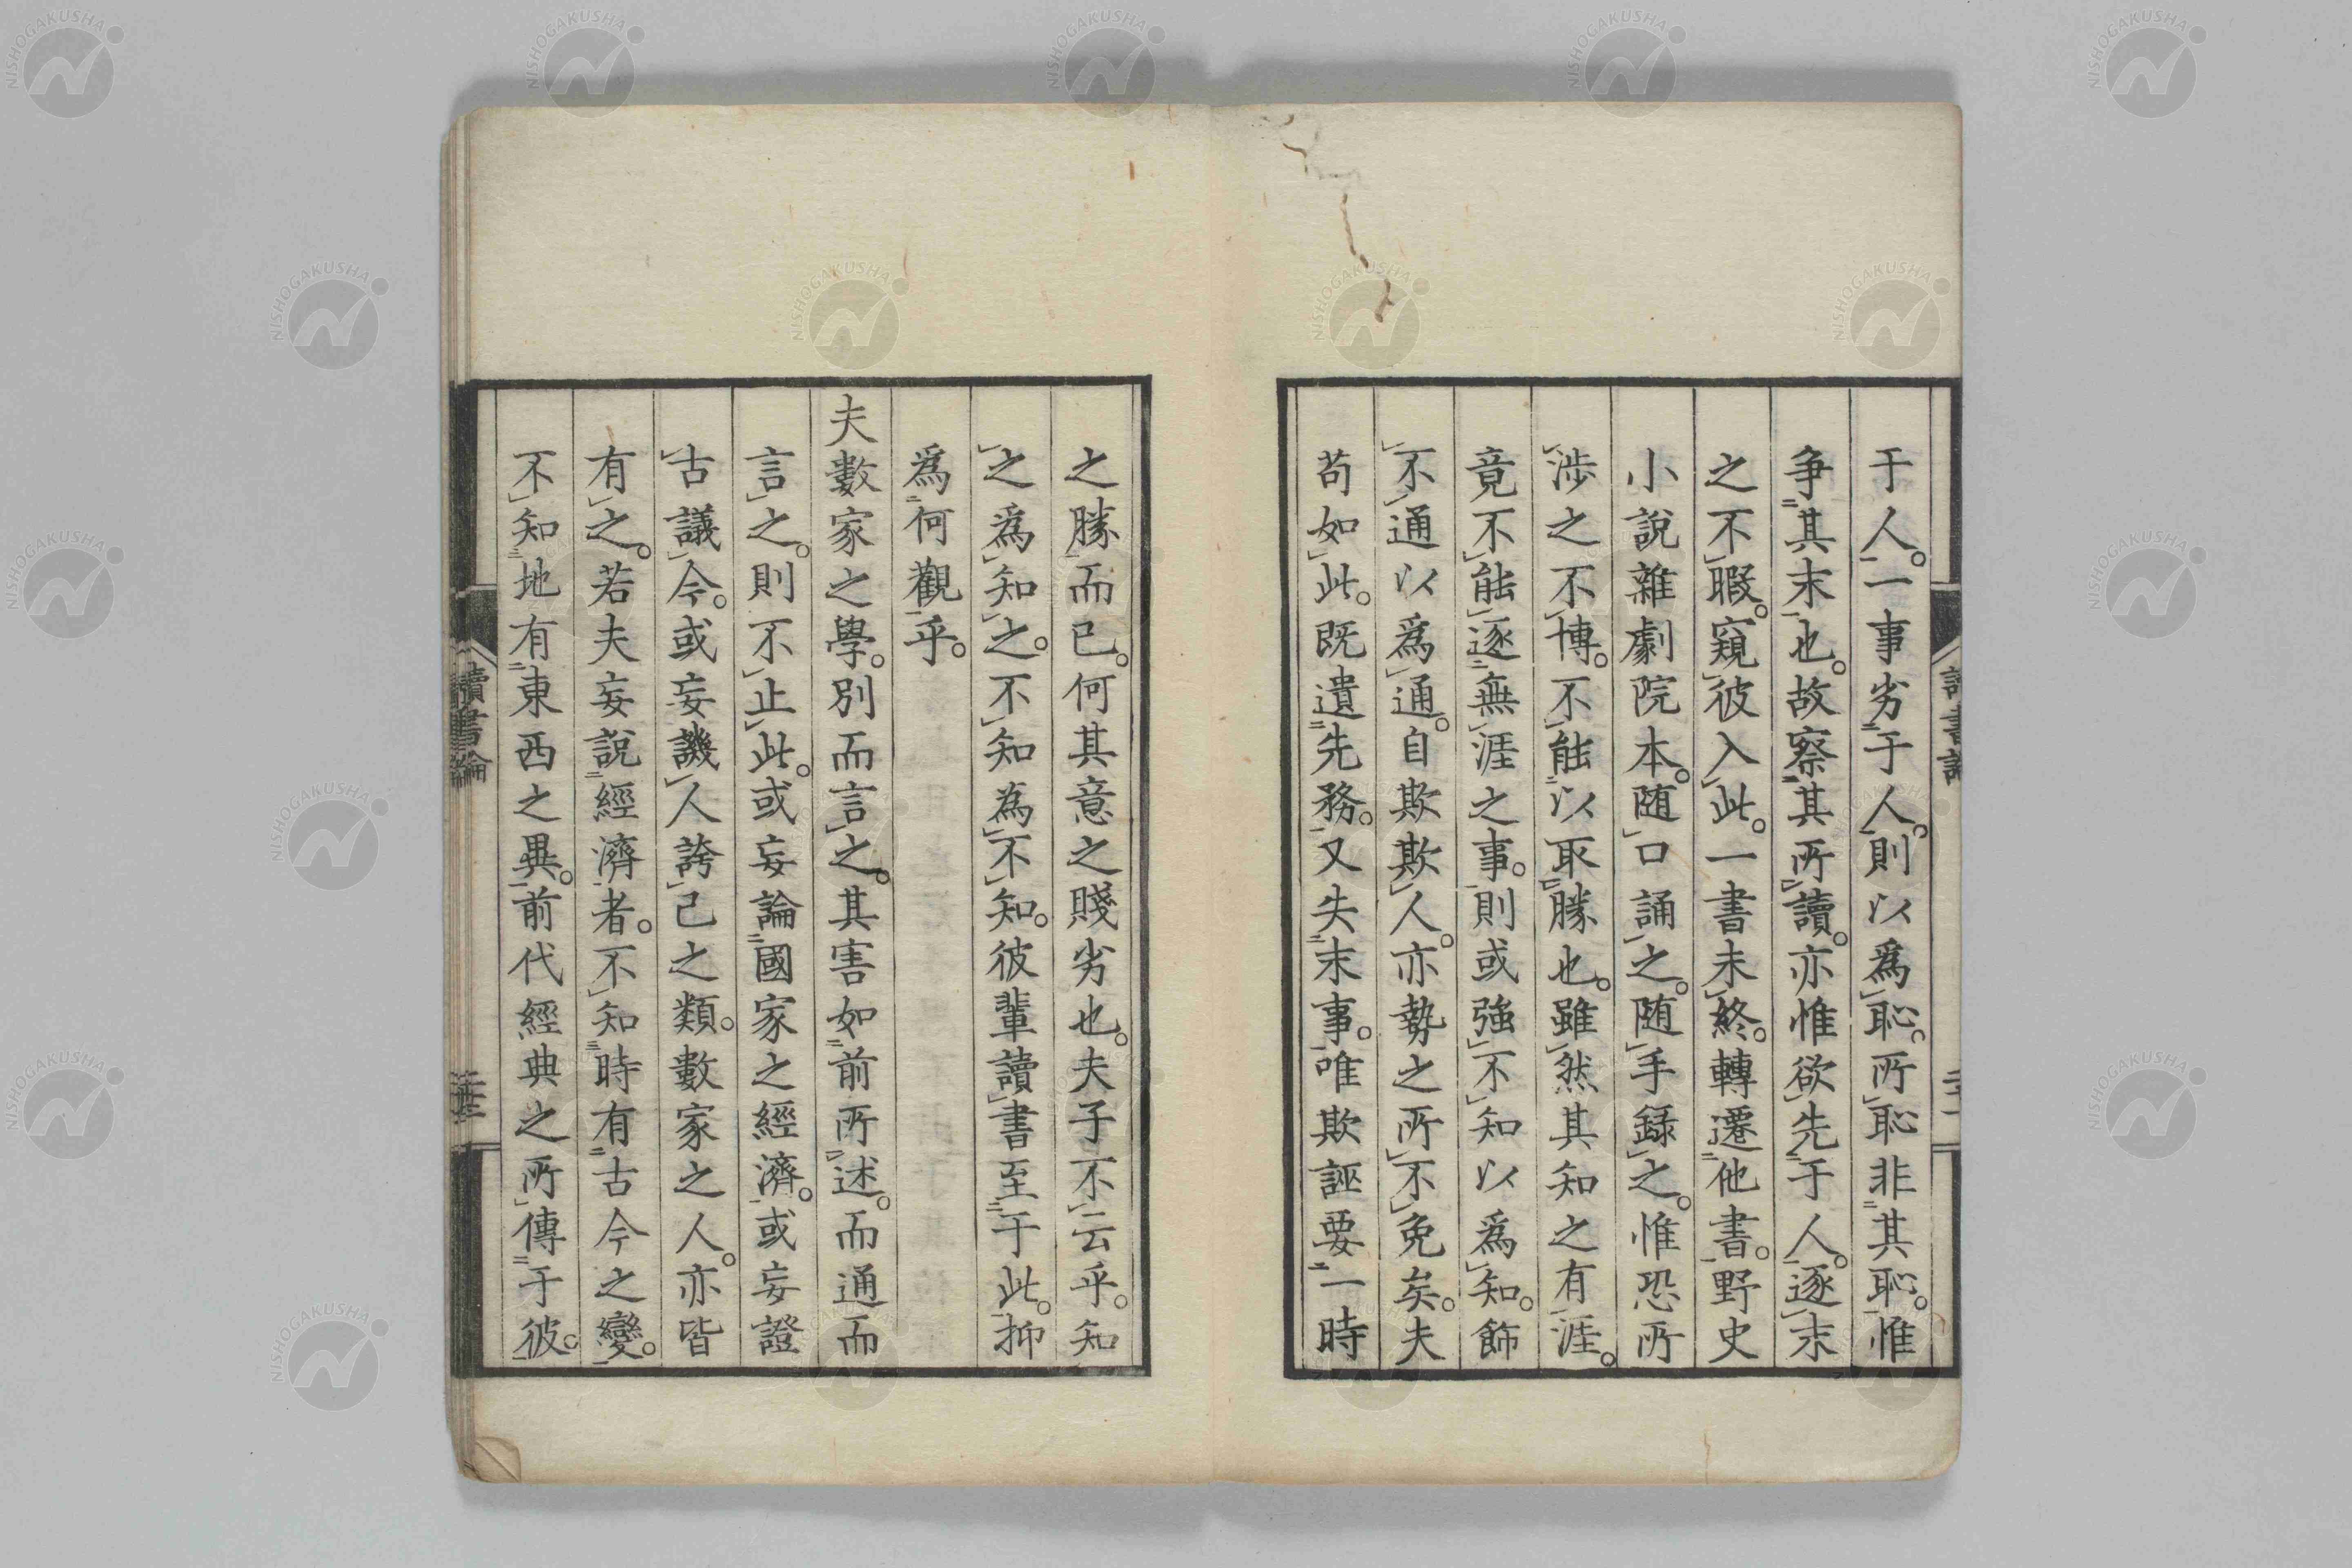 于人。一事劣于人。則以爲恥。所恥非其恥。惟
争其末也。故察其所讀。亦惟欲先于人。逐末
之不暇。窺彼入此。一書未終。轉遷他書。野史
小說雜劇院本。随口誦之。随手録之。惟恐所
渉之不博。不能以取勝也。雖然其知之有涯。
竟不能逐無涯之事。則或強不知以爲知。飾
不通以爲通。自欺欺人。亦勢之所不免矣。夫
苟如此。既遺先務。又失末事。唯欺誣要一時
之勝而已。何其意之賤劣也。夫子不云乎。知
之爲知之。不知為不知。彼輩讀書至于此。抑
爲何觀乎。
夫數家之學。別而言之。其害如前所述。而通而
言之。則不止此。或妄論國家之經濟。或妄證
古議今。或妄譏人誇己之類。數家之人。亦皆
有之。若夫妄說經濟者。不知時有古今之變。
不知地有東西之異。前代經典之所傳于彼。
讀書論
NISHOGAKUSHA